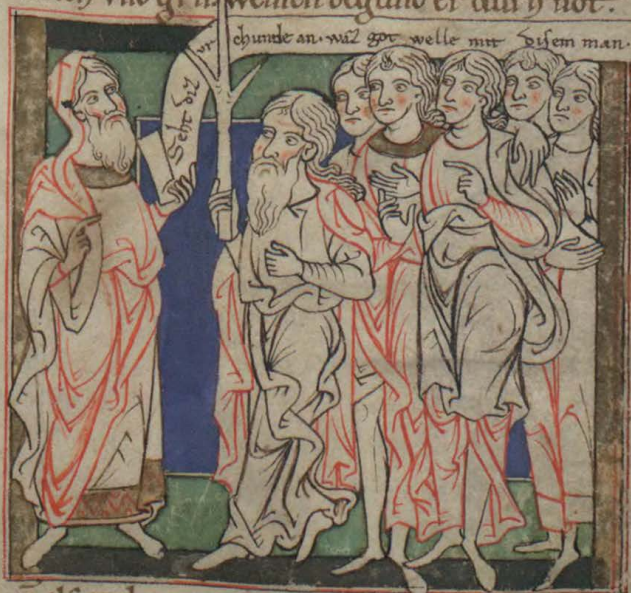 weinen begund er durh not.
Seht diz vrchunde an · waz got welle mit disem man ·